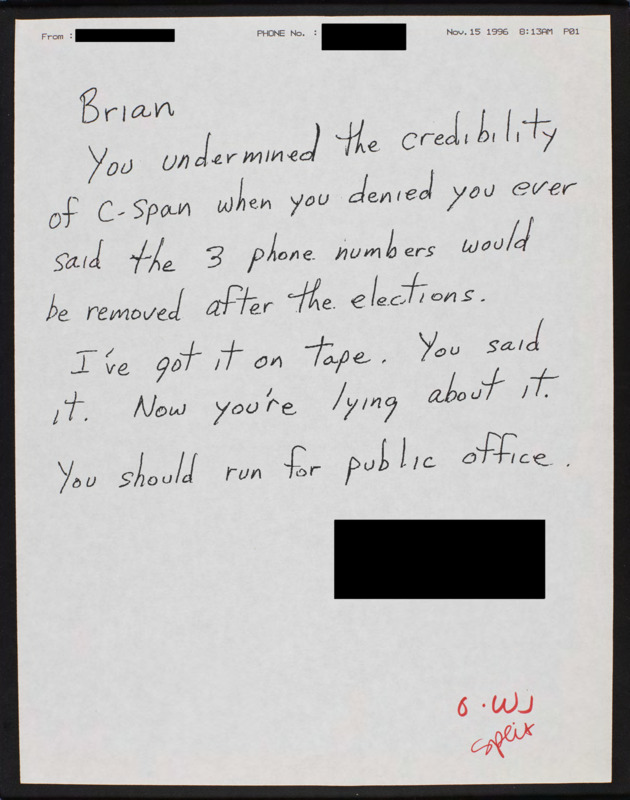 From :
PHONE No. :
Nov.15 1996 8:13AM P01
Brian
You undermined the credibility
of C-Span when you denied you ever
said the 3 phone numbers would
be removed after the elections.
I've got it on tape. You said
it. Now you're lying about it.
You should run for public office.